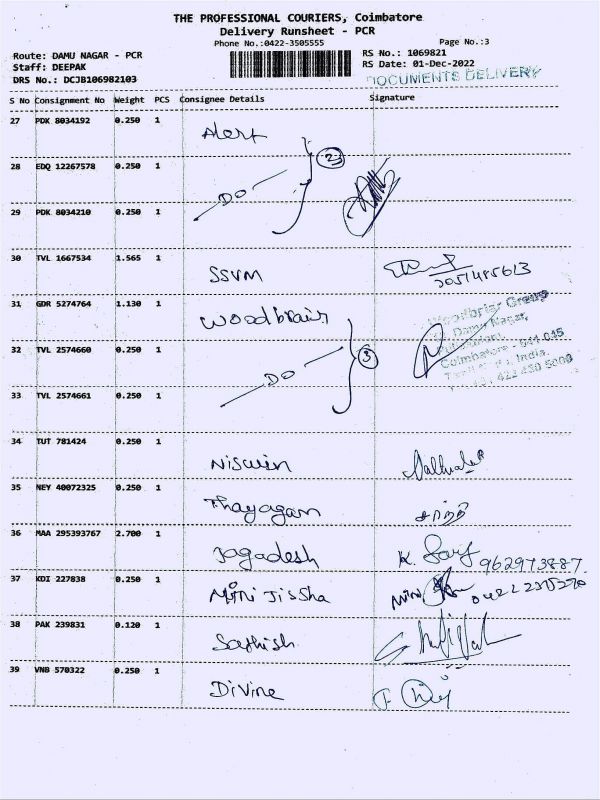 THE PROFESSIONAL COURIERS, Coimbatore
Delivery Runsheet - PCR
Phone No.:0422-3505555
Page No.:3
Route: DAMU NAGAR - PCR
RS No.: 1069821
Staff: DEEPAK
RS Date: 01-Dec-2022
DRS No.: DCJB106982103
DOCUMENTS DELIVERY
S No Consignment No Weight PCS Consignee Details Signature
27 PDK 8034192 0.250 1 Alert
28 EDQ 12267578 0.250 1 DO 2
29 PDK 8034210 0.250 1
30 TVL 1667534 1.565 1 SSVM
31 GDR 5274764 1.130 1 Woodbriar
Woodbriar Group
Damu Nagar,
Coimbatore - 641 045
India.
32 TVL 2574660 0.250 1 DO 3
33 TVL 2574661 0.250 1
34 TUT 781424 0.250 1 Niswin
35 NEY 40072325 0.250 1 Thayagam
36 MAA 295393767 2.700 1 Jagadesh K.
37 KDI 227838 0.250 1 Mini Jissha Mini
38 PAK 239831 0.120 1 Sathish
39 VNB 570322 0.250 1 Divine